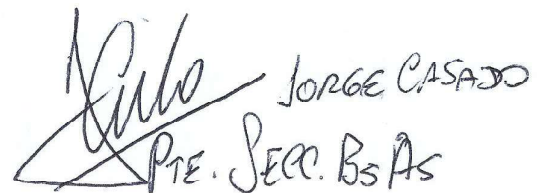 JORGE CASADO
PTE. SECC. BS AS